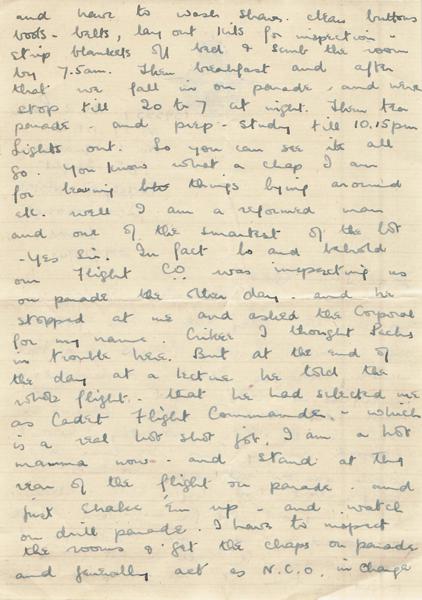 and have to wash shave. clean buttons
boots - belts, lay out kits for inspection -
strip blankets off bed & scrub the room
by 7.5am. Then breakfast and after
that we fall in on parade, and never
stop till 20 to 7 at night. Then tea
parade - and prep - study till 10.15pm
Lights out. So you can see its all
go. You know what a chap I am
for leaving things lying around
etc. well I am a reformed man
and one of the smartest of the lot
- Yes Sir. In fact lo and behold
our Flight C.O. was inspecting us
on parade the other day. and he
stopped at me and asked the Corporal
for my name. Crikey I thought
in trouble here. But at the end of
the day at a lecture he told the
whole flight. that he had selected me
as Cadet Flight Commander. - which
is a real hot shot job. I am a hot
mamma now - and stand at the
rear of the flight on parade. and
just shake 'em up - and watch
on drill parade. I have to inspect
the rooms & get the chaps on parade
and generally act as N.C.O. in charge